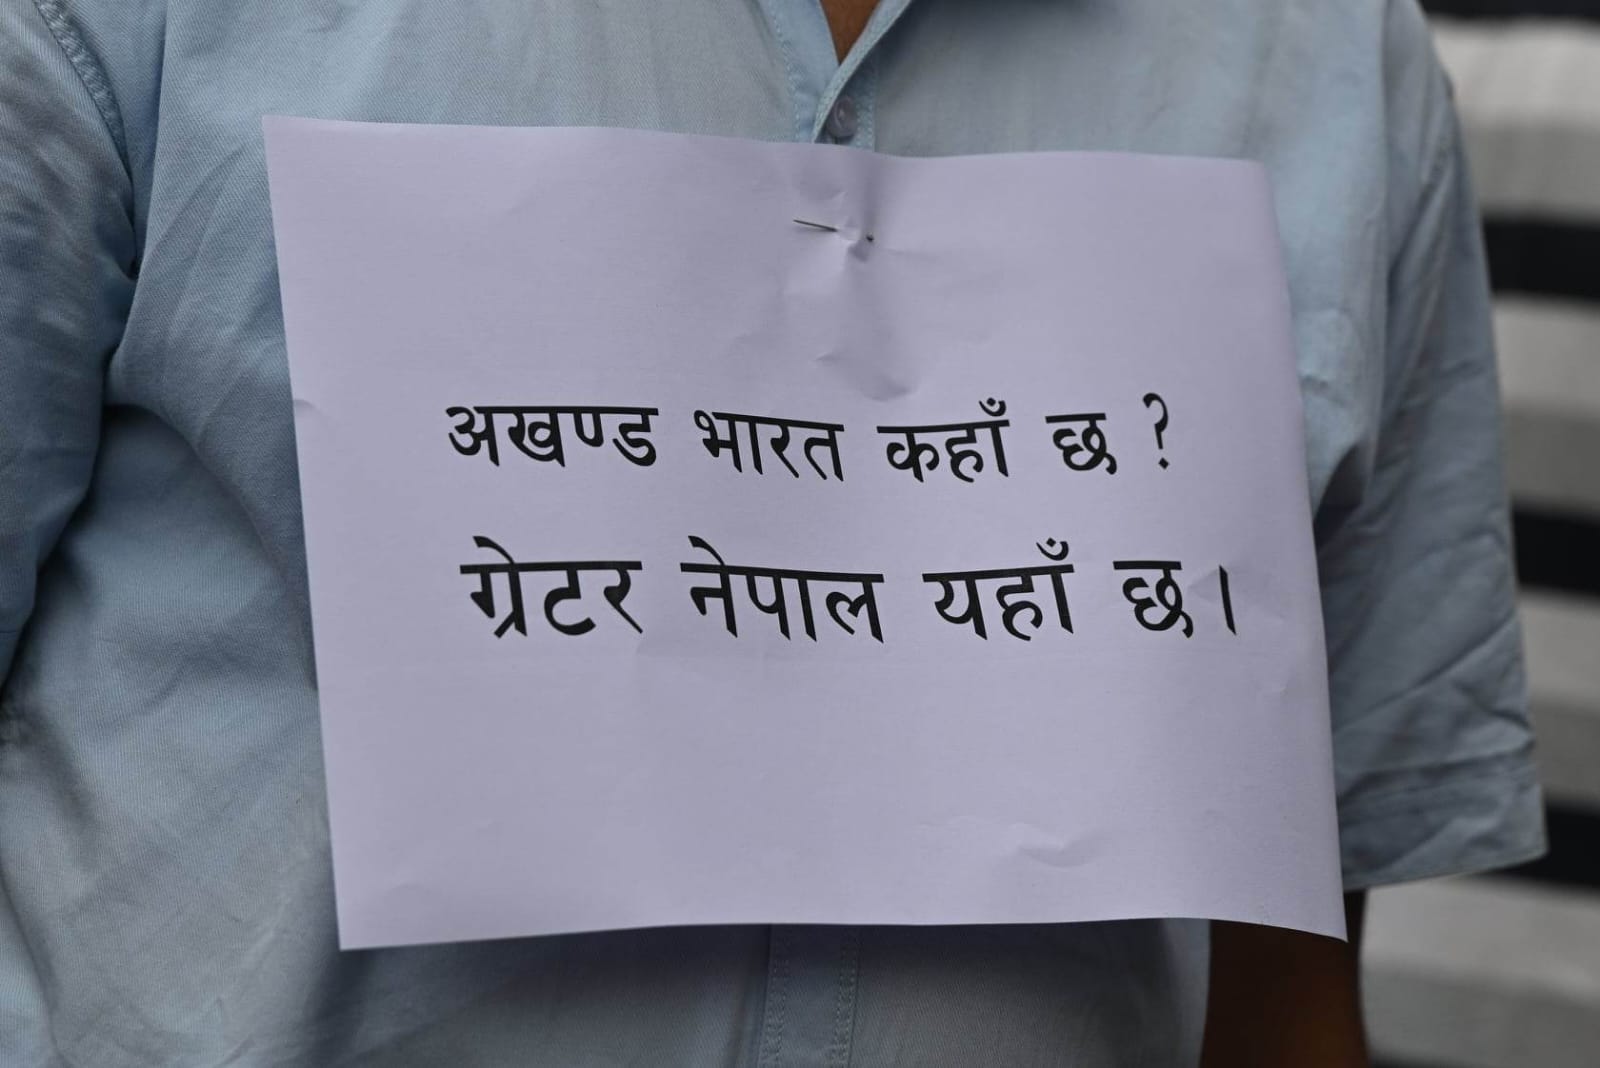 अखण्ड भारत कहाँ छ ?
ग्रेटर नेपाल यहाँ छ ।